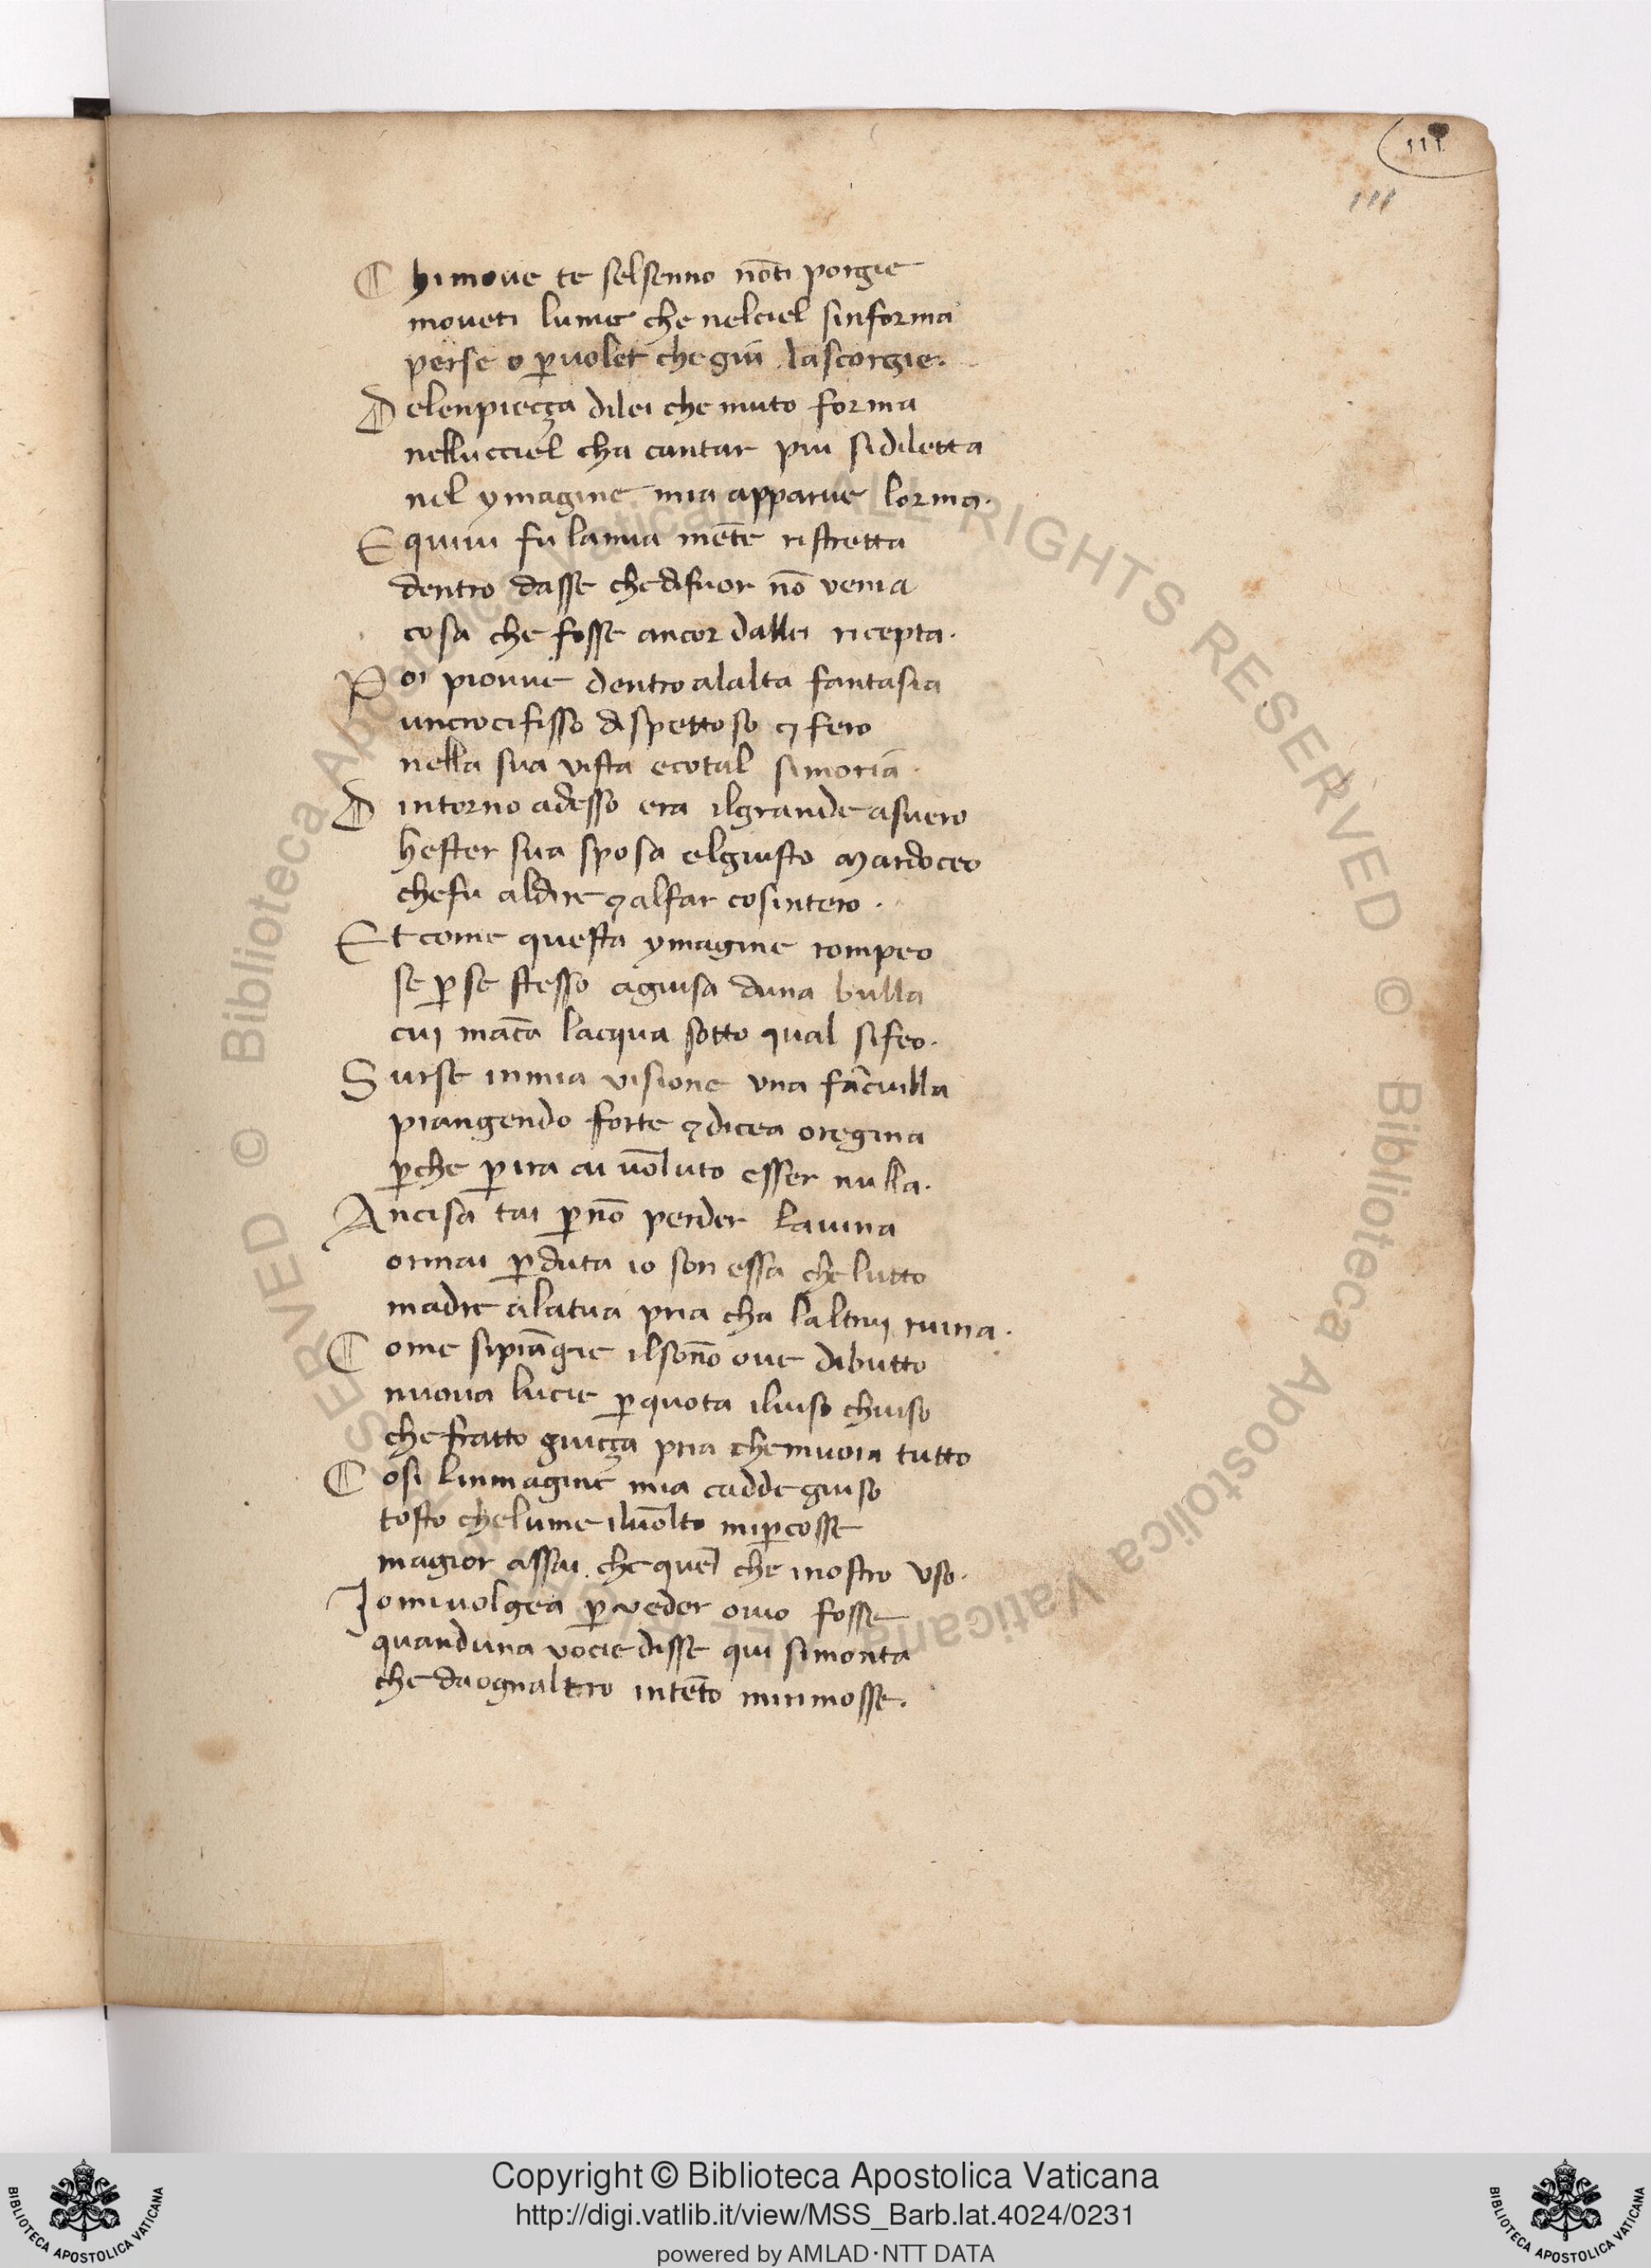 111
111
Chi move te selsenno nōti porgie
moveti lume che nelciel sinforma
perse o ꝑ voler che giu lascorgie.
Delenpiecça dilei che muto forma
nelluccel cha cantar piu sidiletta
nel ymagine mia apparve lorma.
E quivi fu lamia mēte ristretta
dentro dasse chedifuor nō venia
cosa che fosse ancor dallei ricepta.
Poi piovve dentro alalta fantasia
uncrocifisso dispettoso ⁊ fero
nella sua vista ecotal simoria.
Dintorno adesso era ilgrande asuero
hester sua sposa elgiusto mardoceo
chefu aldire ⁊ alfar cosintero.
Et come questa ymagine rompeo
se ꝑ se stesso aguisa duna bulla
cui māca lacqua sotto qual sifeo.
Surse inmia visione una fāciulla
piangendo forte ⁊ dicea oregina
ꝑche ꝑ ira ai voluto esser nulla.
Ancisa tai ꝑ nō perder lavina
ormai ꝑduta io son essa che lutto
madre alatua pria cha laltrui ruina.
Come sipiāgie ilsonno ove dibutto
nuova lucie ꝑquota ilviso chiuso
chefratto guicça pria chemuoia tutto
Cosi linmagine mia cadde giuso
tosto chelume ilvolto miꝑcosse
magior assai che quel che nostro uso.
Jo mivolgea ꝑ veder ovio fosse
quanduna vocie disse qui simonta
che daognaltro intēto mirimosse.
© Biblioteca Apostolica Vaticana ALL RIGHTS RESERVED
© Biblioteca Apostolica Vaticana ALL RIGHTS RESERVED
Copyright © Biblioteca Apostolica Vaticana
http://digi.vatlib.it/view/MSS_Barb.lat.4024/0231
powered by AMLAD·NTT DATA
BIBLIOTECA APOSTOLICA VATICANA
BIBLIOTECA APOSTOLICA VATICANA